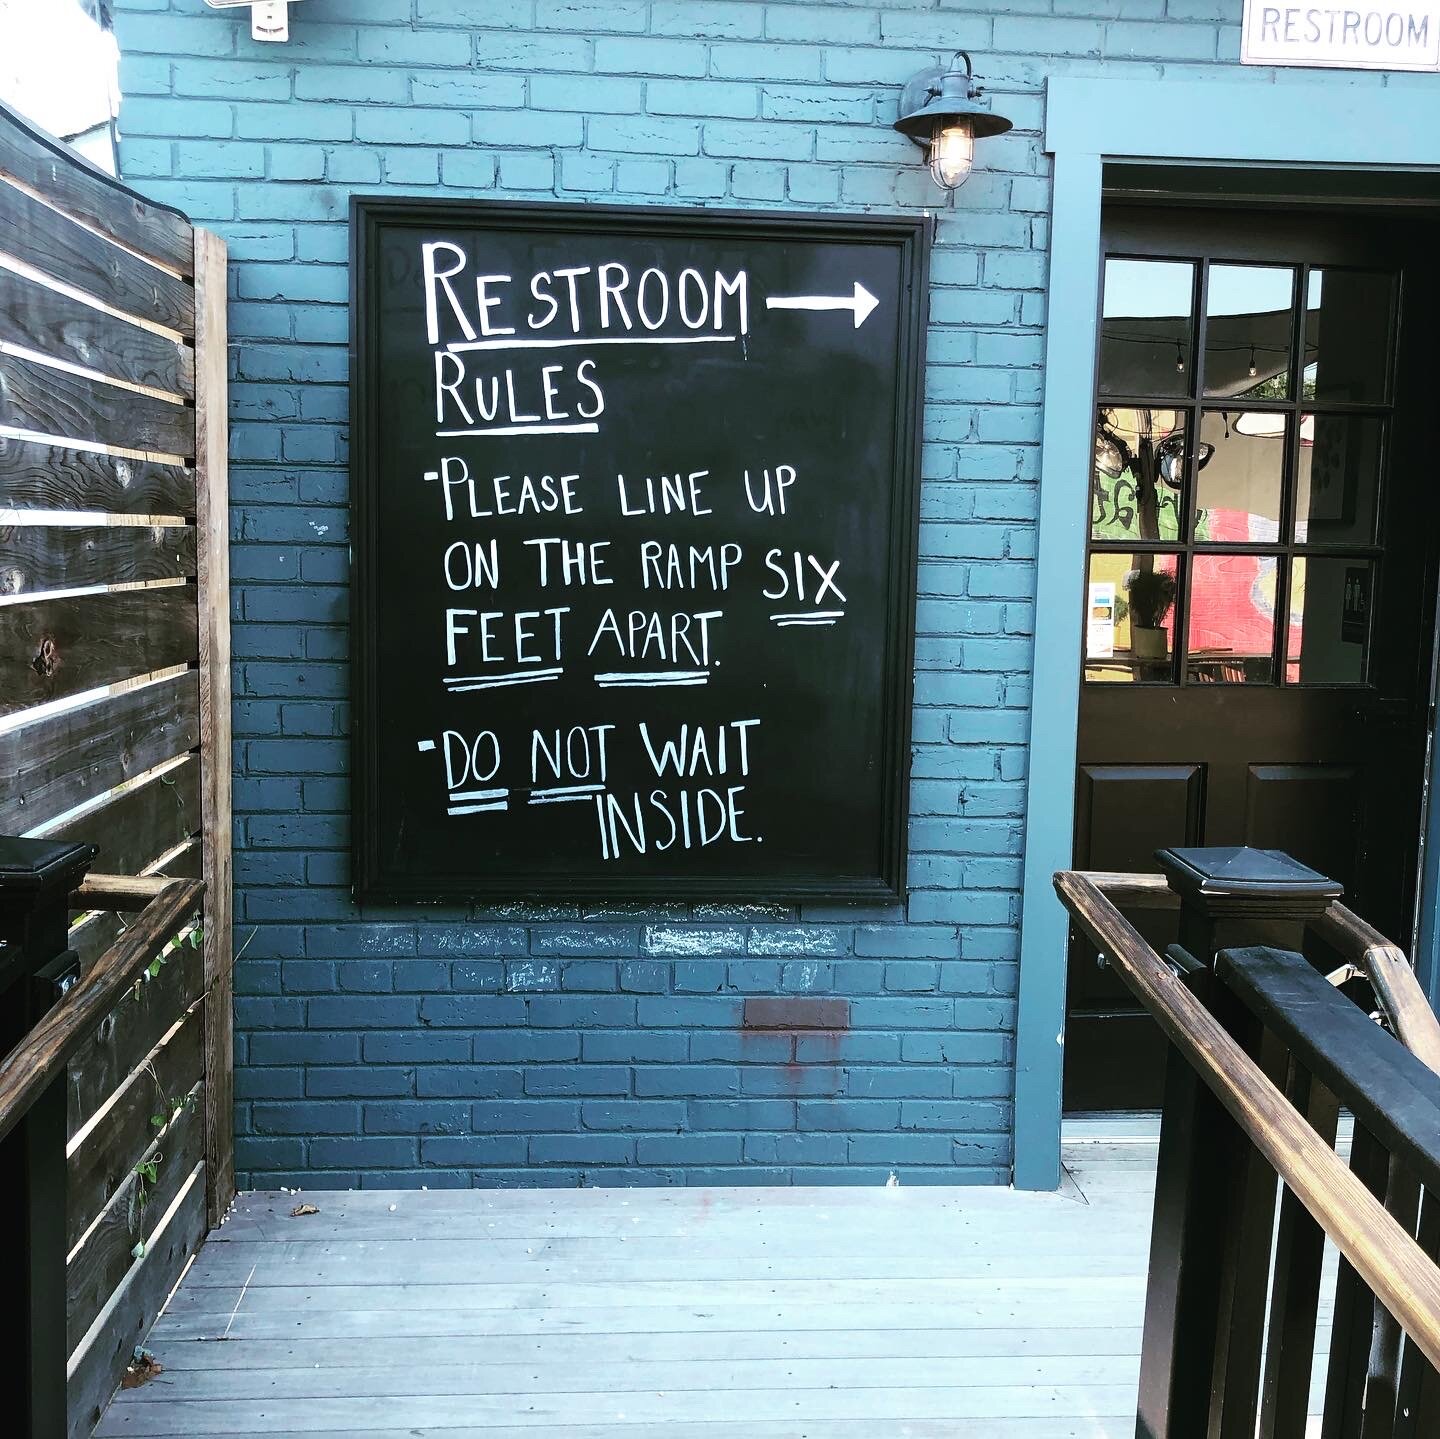 RESTROOM
RESTROOM →
RULES
-PLEASE LINE UP
ON THE RAMP SIX
FEET APART.
-DO NOT WAIT
INSIDE.